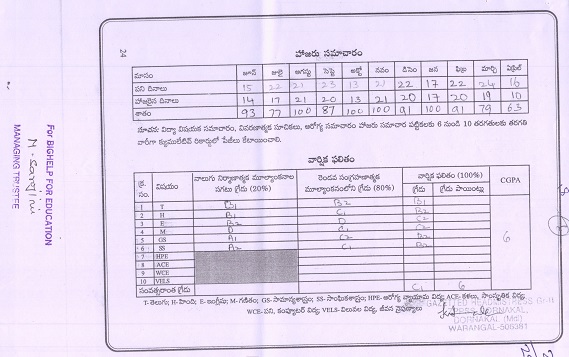 24
హాజరు సమాచారం
మాసం జూన్ జులై ఆగష్టు సెప్టె అక్టో నవం డిసెం జన ఫిబ్ర మార్చి ఏప్రిల్
పని దినాలు 15 22 21 23 13 21 22 17 22 24 16
హాజరైన దినాలు 14 17 21 20 13 21 20 17 20 19 10
శాతం 93 77 100 87 100 100 91 100 91 79 63
సూచన: విద్యా విషయక సమాచారం, వివరణాత్మక సూచికలు, ఆరోగ్య సమాచారం హాజరు సమాచార పట్టికలకు 6 నుండి 10 తరగతులకు తరగతి
వారీగా క్యుములేటివ్ రికార్డులో పేజీలు కేటాయించాలి.
వార్షిక ఫలితం
క్ర. సం. విషయం నాలుగు నిర్మాణాత్మక మూల్యాంకనాల సగటు గ్రేడు (20%) రెండవ సంగ్రహణాత్మక మూల్యాంకనంలోని గ్రేడు (80%) వార్షిక ఫలితం (100%) CGPA
గ్రేడు గ్రేడు పాయింట్లు
1 T B1 B2 B1
2 H B1 C1 B2
3 E B2 D C2
4 M D
5 GS A1 C2
6 SS A2 C1
6
7 HPE
8 ACE
9 WCE
10 VELS
సంవత్సరాంత గ్రేడు C1 6
T-తెలుగు; H-హింది; E-ఇంగ్లీషు; M-గణితం; GS-సామాన్యశాస్త్రం; SS-సాంఘికశాస్త్రం; HPE-ఆరోగ్య వ్యాయామ విద్య ACE-కళలు, సాంస్కృతిక విద్య;
WCE-పని, కంప్యూటర్ విద్య VELS-విలువల విద్య, జీవన నైపుణ్యాలు
GAZETTED HEADMISTRESS Gr-II
DORNAKAL,
DORNAKAL (Md)
WARANGAL-506381
For BIGHELP FOR EDUCATION
MANAGING TRUSTEE